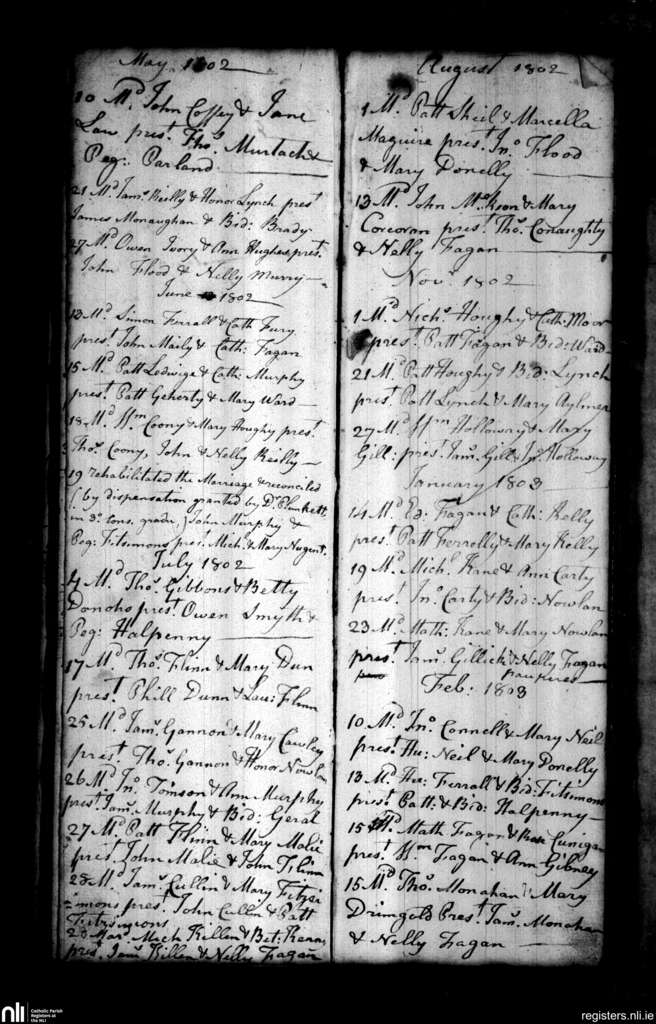 May 1802
10 Md John Coffey & Jane
Law prest. Thos. Murtach &
Peg: Parland
21 Md Jams. Reilly & Honor Lynch prest
James Monaughan & Bid: Brady
27 Md Owen Ivory & Ann Hughes prest.
John Flood & Nelly Murry
June 1802
13 Md Simon Ferrall & Cath Fury
prest. John Maily & Cath: Fagan
15 Md Patt Ledwige & Cath: Murphy
prest Patt Geherty & Mary Ward
18 Md Wm Coony & Mary Houghy prest.
Thos. Coony, John & Nelly Reilly
19 rehabilitated the Marriage & reconciled
(by dispensation granted by Dr. Plunkett
in 3o. Cons. grade,) John Murphy &
Peg: Fitsimons prest. Mich: & Mary Nugent.
July 1802
4 Md Thos. Gibbons & Betty
Donoho prest. Owen Smyth &
Peg: Halpenny
17 Md Thos. Flinn & Mary Dun
prest. Phill Dunn & Lau: Flinn
25 Md Jams. Gannon & Mary Cawley
prest. Thos. Gannon & Honor Nowlan
26 Md Jno. Tomson & Ann Murphy
prest. Jams. Murphy & Bid: Geral
27 Md Patt Flinn & Mary Malie
prest. John Malie & John Flinn
28 Md Jams. Cullin & Mary Fitzsi
=mons prest. John Cullen & Patt
Fitzsimons
28 Mar. Mich Killen & Bet:
prest. Jams. Killen & Nelly Fagan
August 1802
1 Md. Patt Sheil & Marcella
Maguire prest. Jno. Flood
& Mary Donelly
13 Md. John McKeon & Mary
Corcoran prest. Thos. Conaughty
& Nelly Fagan
Novr. 1802
1 Md. Nichs. Houghy & Cath: Moor
prest. Patt Fagan & Bid: Ward
21 Md Patt Houghy & Bid: Lynch
prest. Patt Lynch & Mary Aylmer
27 Md Wm Holloway & Mary
Gill: prest. Jams. Gill & Jno. Holloway
January 1803
14 Md Ed: Fagan & Cath: Kelly
prest. Patt Ferrolly & Mary Kelly
19 Md. Michl. Kane & Ann Carty
prest. Jno. Carty & Bid: Nowlan
23 Md. Math: Kane & Mary Nowlan
prest. Jams. Gillick & Nelly Fagan
pauperes
Feb: 1803
10 Md Jno. Connell & Mary Neil
prest. Hu: Neil & Mary Donelly
13 Md. Hu: Ferrall & Bid: Fitsimons
prest. Patt. & Bid: Halpenny
15 Md. Math Fagan & Rose Cunigan
prest. Wm Fagan & Ann Gibney
15 Md Thos. Monahan & Mary
Drumgold Prest. Jams. Monahan
& Nelly Fagan
nli Catholic Parish
Registers at
the NLI
registers.nli.ie